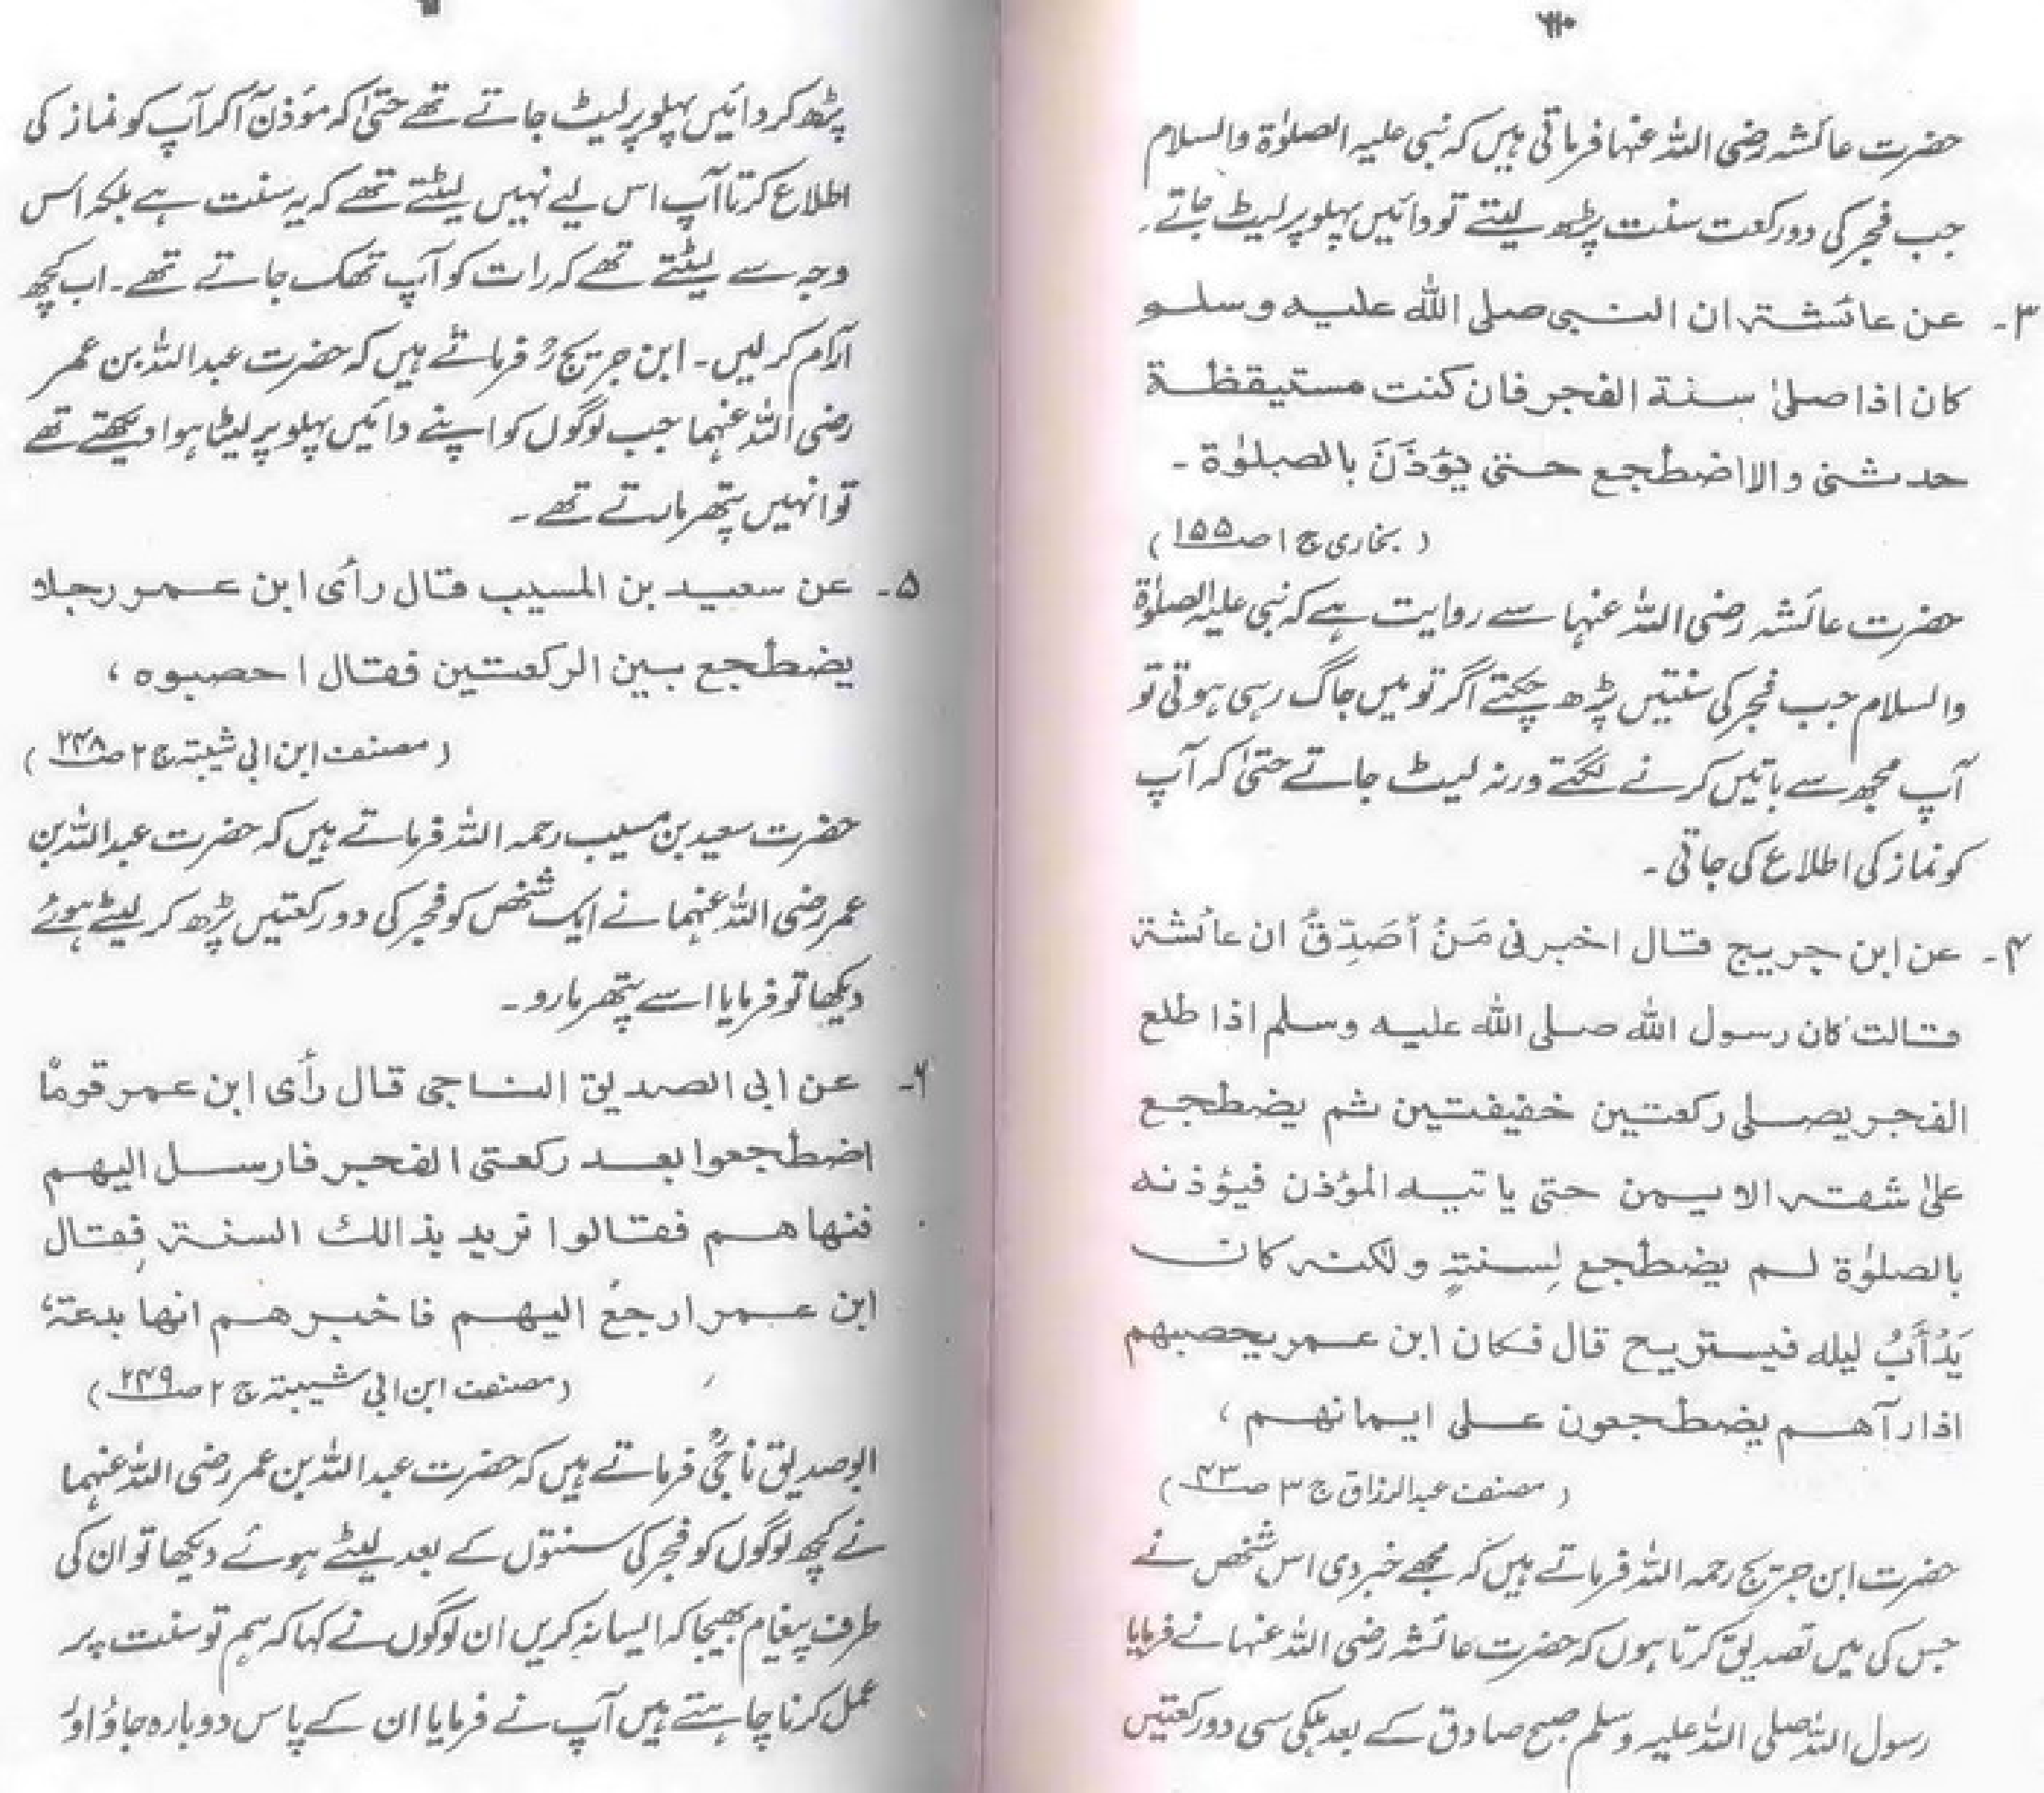 حضرت عائشہ رضی اللہ عنہا فرماتی ہیں کہ نبی علیہ الصلوٰۃ والسلام
جب فجر کی دو رکعت سنت پڑھ لیتے تو دائیں پہلو پر لیٹ جاتے۔
۳۔ عن عائشۃ ان النبی صلی اللہ علیہ وسلم
کان اذا صلیٰ سنۃ الفجر فان کنت مستیقظۃ
حدثنی والا اضطجع حتی یؤذَنَ بالصلوٰۃ۔
(بخاری ج ۱ ص۱۵۵)
حضرت عائشہ رضی اللہ عنہا سے روایت ہے کہ نبی علیہ الصلوٰۃ
والسلام جب فجر کی سنتیں پڑھ چکتے اگر تو میں جاگ رہی ہوتی تو
آپ مجھ سے باتیں کرنے لگتے ورنہ لیٹ جاتے حتیٰ کہ آپ
کو نماز کی اطلاع کی جاتی۔
۴۔ عن ابن جریج قال اخبرنی مَنْ اُصَدِّقُ ان عائشۃ
قالت کان رسول اللہ صلی اللہ علیہ وسلم اذا طلع
الفجر یصلی رکعتین خفیفتین ثم یضطجع
علیٰ شقہ الایمن حتی یاتیہ المؤذن فیؤذنہ
بالصلوٰۃ لم یضطجع لِسنۃٍ ولکنہ کان
یَدْأَبُ لیلہ فیستریح قال فکان ابن عمر یحصبھم
اذا رآھم یضطجعون علی ایمانھم،
(مصنف عبدالرزاق ج ۳ ص۴۳)
حضرت ابن جریج رحمہ اللہ فرماتے ہیں کہ مجھے خبر دی اس شخص نے
جس کی میں تصدیق کرتا ہوں کہ حضرت عائشہ رضی اللہ عنہا نے فرمایا
رسول اللہ صلی اللہ علیہ وسلم صبح صادق کے بعد ہلکی سی دو رکعتیں
پڑھ کر دائیں پہلو پر لیٹ جاتے تھے حتیٰ کہ مؤذن آکر آپ کو نماز کی
اطلاع کرتا آپ اس لیے نہیں لیٹتے تھے کہ یہ سنت ہے بلکہ اس
وجہ سے لیٹتے تھے کہ رات کو آپ تھک جاتے تھے۔ اب کچھ
آرام کر لیں۔ ابن جریجؒ فرماتے ہیں کہ حضرت عبداللہ بن عمر
رضی اللہ عنہما جب لوگوں کو اپنے دائیں پہلو پر لیٹا ہوا دیکھتے تھے
تو انہیں پتھر مارتے تھے۔
۵۔ عن سعید بن المسیب قال رأی ابن عمر رجلا
یضطجع بین الرکعتین فقال احصبوہ،
(مصنف ابن ابی شیبۃ ج ۲ ص۲۴۸)
حضرت سعید بن مسیب رحمہ اللہ فرماتے ہیں کہ حضرت عبداللہ بن
عمر رضی اللہ عنہما نے ایک شخص کو فجر کی دو رکعتیں پڑھ کر لیٹے ہوئے
دیکھا تو فرمایا اسے پتھر مارو۔
۶۔ عن ابی الصدیق الناجی قال رأی ابن عمر قوماً
اضطجعوا بعد رکعتی الفجر فارسل الیھم
فنھاھم فقالوا نرید بذالك السنۃ فقال
ابن عمر ارجع الیھم فاخبرھم انھا بدعۃ،
(مصنف ابن ابی شیبۃ ج ۲ ص۲۴۹)
ابوصدیق ناجیؒ فرماتے ہیں کہ حضرت عبداللہ بن عمر رضی اللہ عنہما
نے کچھ لوگوں کو فجر کی سنتوں کے بعد لیٹے ہوئے دیکھا تو ان کی
طرف پیغام بھیجا کہ ایسا نہ کریں ان لوگوں نے کہا کہ ہم تو سنت پر
عمل کرنا چاہتے ہیں آپ نے فرمایا ان کے پاس دوبارہ جاؤ اور